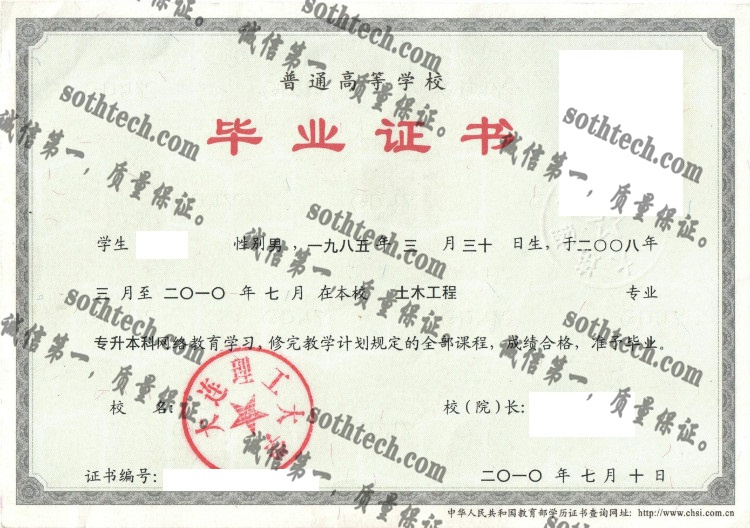 普通高等学校
毕业证书
学生 性别男，一九八五年 三 月三十 日生，于二〇〇八年
三 月至 二〇一〇 年 七 月 在本校 土木工程 专业
专升本科网络教育学习，修完教学计划规定的全部课程，成绩合格，准予毕业。
校 名：
大连理工大学
校（院）长：
证书编号：
二〇一〇 年 七 月 十 日
中华人民共和国教育部学历证书查询网址：http://www.chsi.com.cn
sothtech.com
诚信第一，质量保证。
sothtech.com
诚信第一，质量保证。
sothtech.com
诚信第一，质量保证。
sothtech.com
诚信第一，质量保证。
sothtech.com
诚信第一，质量保证。
sothtech.com
诚信第一，质量保证。